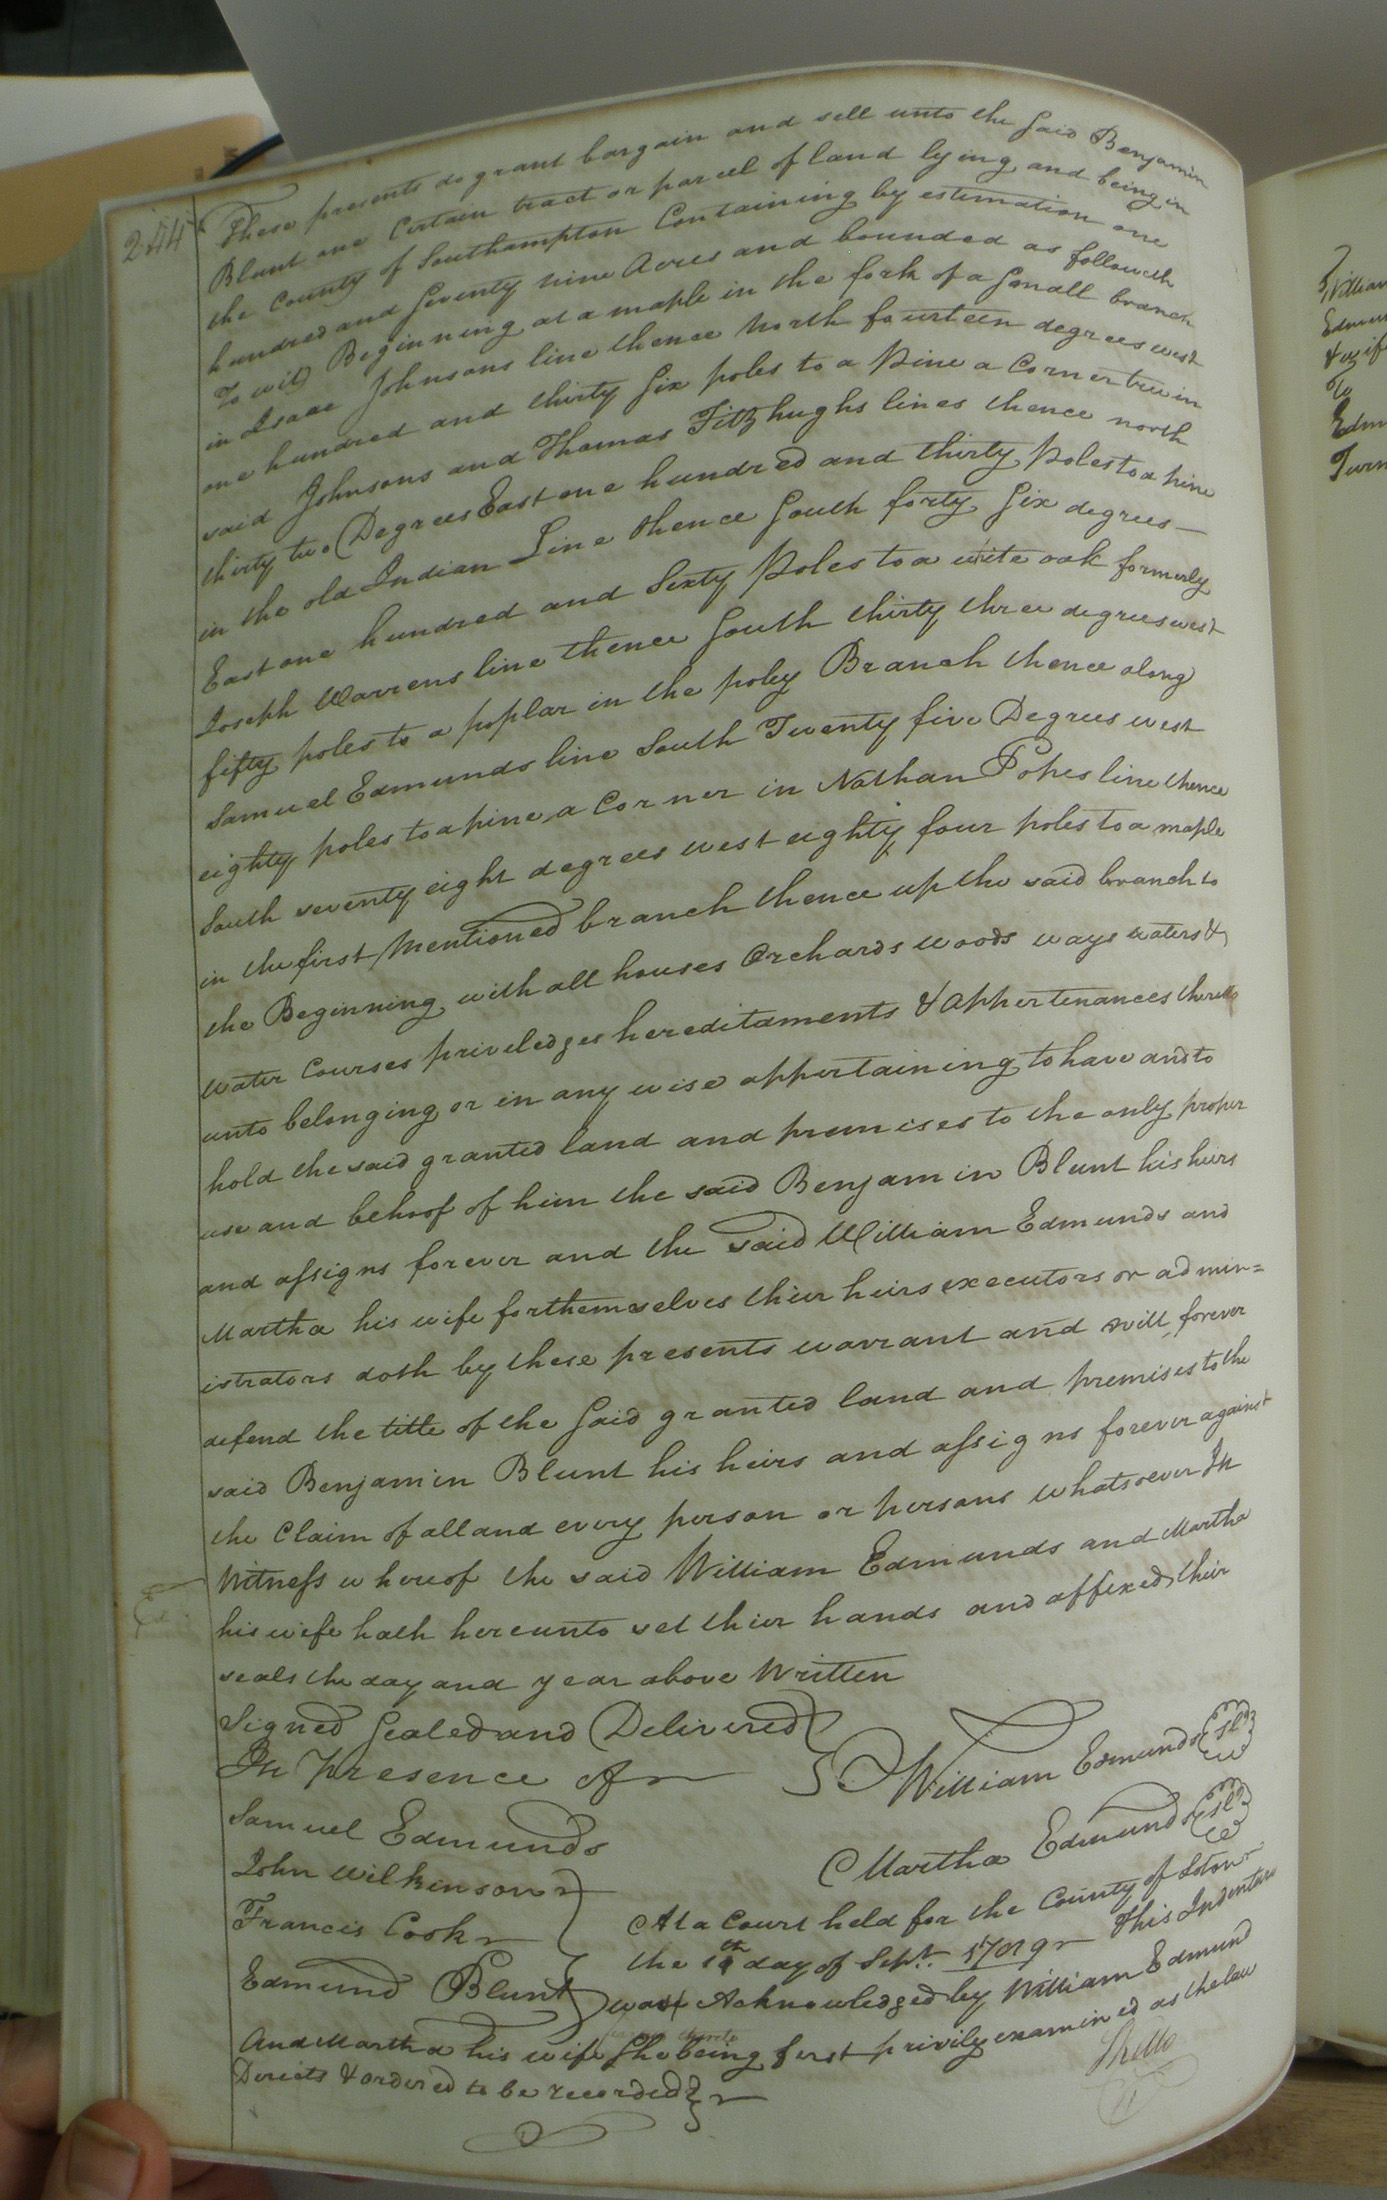 244
These presents do grant bargain and sell unto the said Benjamin
Blunt one Certain tract or parcel of land lying and being in
the County of Southampton Containing by estimation one
hundred and seventy nine Acres and bounded as followeth
To wit) Beginning at a maple in the fork of a small branch
in Isaac Johnsons line thence North fourteen degrees west
one hundred and thirty six poles to a Pine a Corner tree in
said Johnsons and Thomas Fitzhughs lines thence north
thirty two Degrees East one hundred and thirty Poles to a pine
in the old Indian Line thence South forty six degrees
East one hundred and Sixty Poles to a wite oak formerly
Joseph Warrens line thence South thirty three degrees west
fifty poles to a poplar in the poley Branch thence along
Samuel Edmunds line South Twenty five Degrees west
eighty poles to a pine a Corner in Nathan Popes line thence
South seventy eight degrees west eighty four poles to a maple
in the first Mentioned branch thence up the said branch to
the Beginning with all houses Orchards woods ways waters &
water Courses priveledges hereditaments & appertenances there
unto belonging or in any wise appertaining to have and to
hold the said granted land and premises to the only proper
use and behoof of him the said Benjamin Blunt his heirs
and assigns forever and the said William Edmunds and
Martha his wife for themselves thier heirs executors or admin=
istrators doth by these presents warrant and will forever
defend the title of the said granted land and premises to the
said Benjamin Blunt his heirs and assigns forever against
the Claim of all and every person or persons whatsoever In
Witness whereof the said William Edmunds and Martha
his wife hath hereunto set thier hands and affixed thier
seals the day and year above Written
Signed Sealed and Delivered
In Presence of
William Edmunds
Samuel Edmunds
Martha Edmunds
John Wilkinson
Francis Cook
Edmund Blunt
At a Court held for the County of Soton
the day of Sept. This Indenture
was Acknowledged by William Edmund
And Martha his wife She being first privily examined as the law
Derects & ordered to be recorded
William
Edmun
& wife
To
Edm
Turn